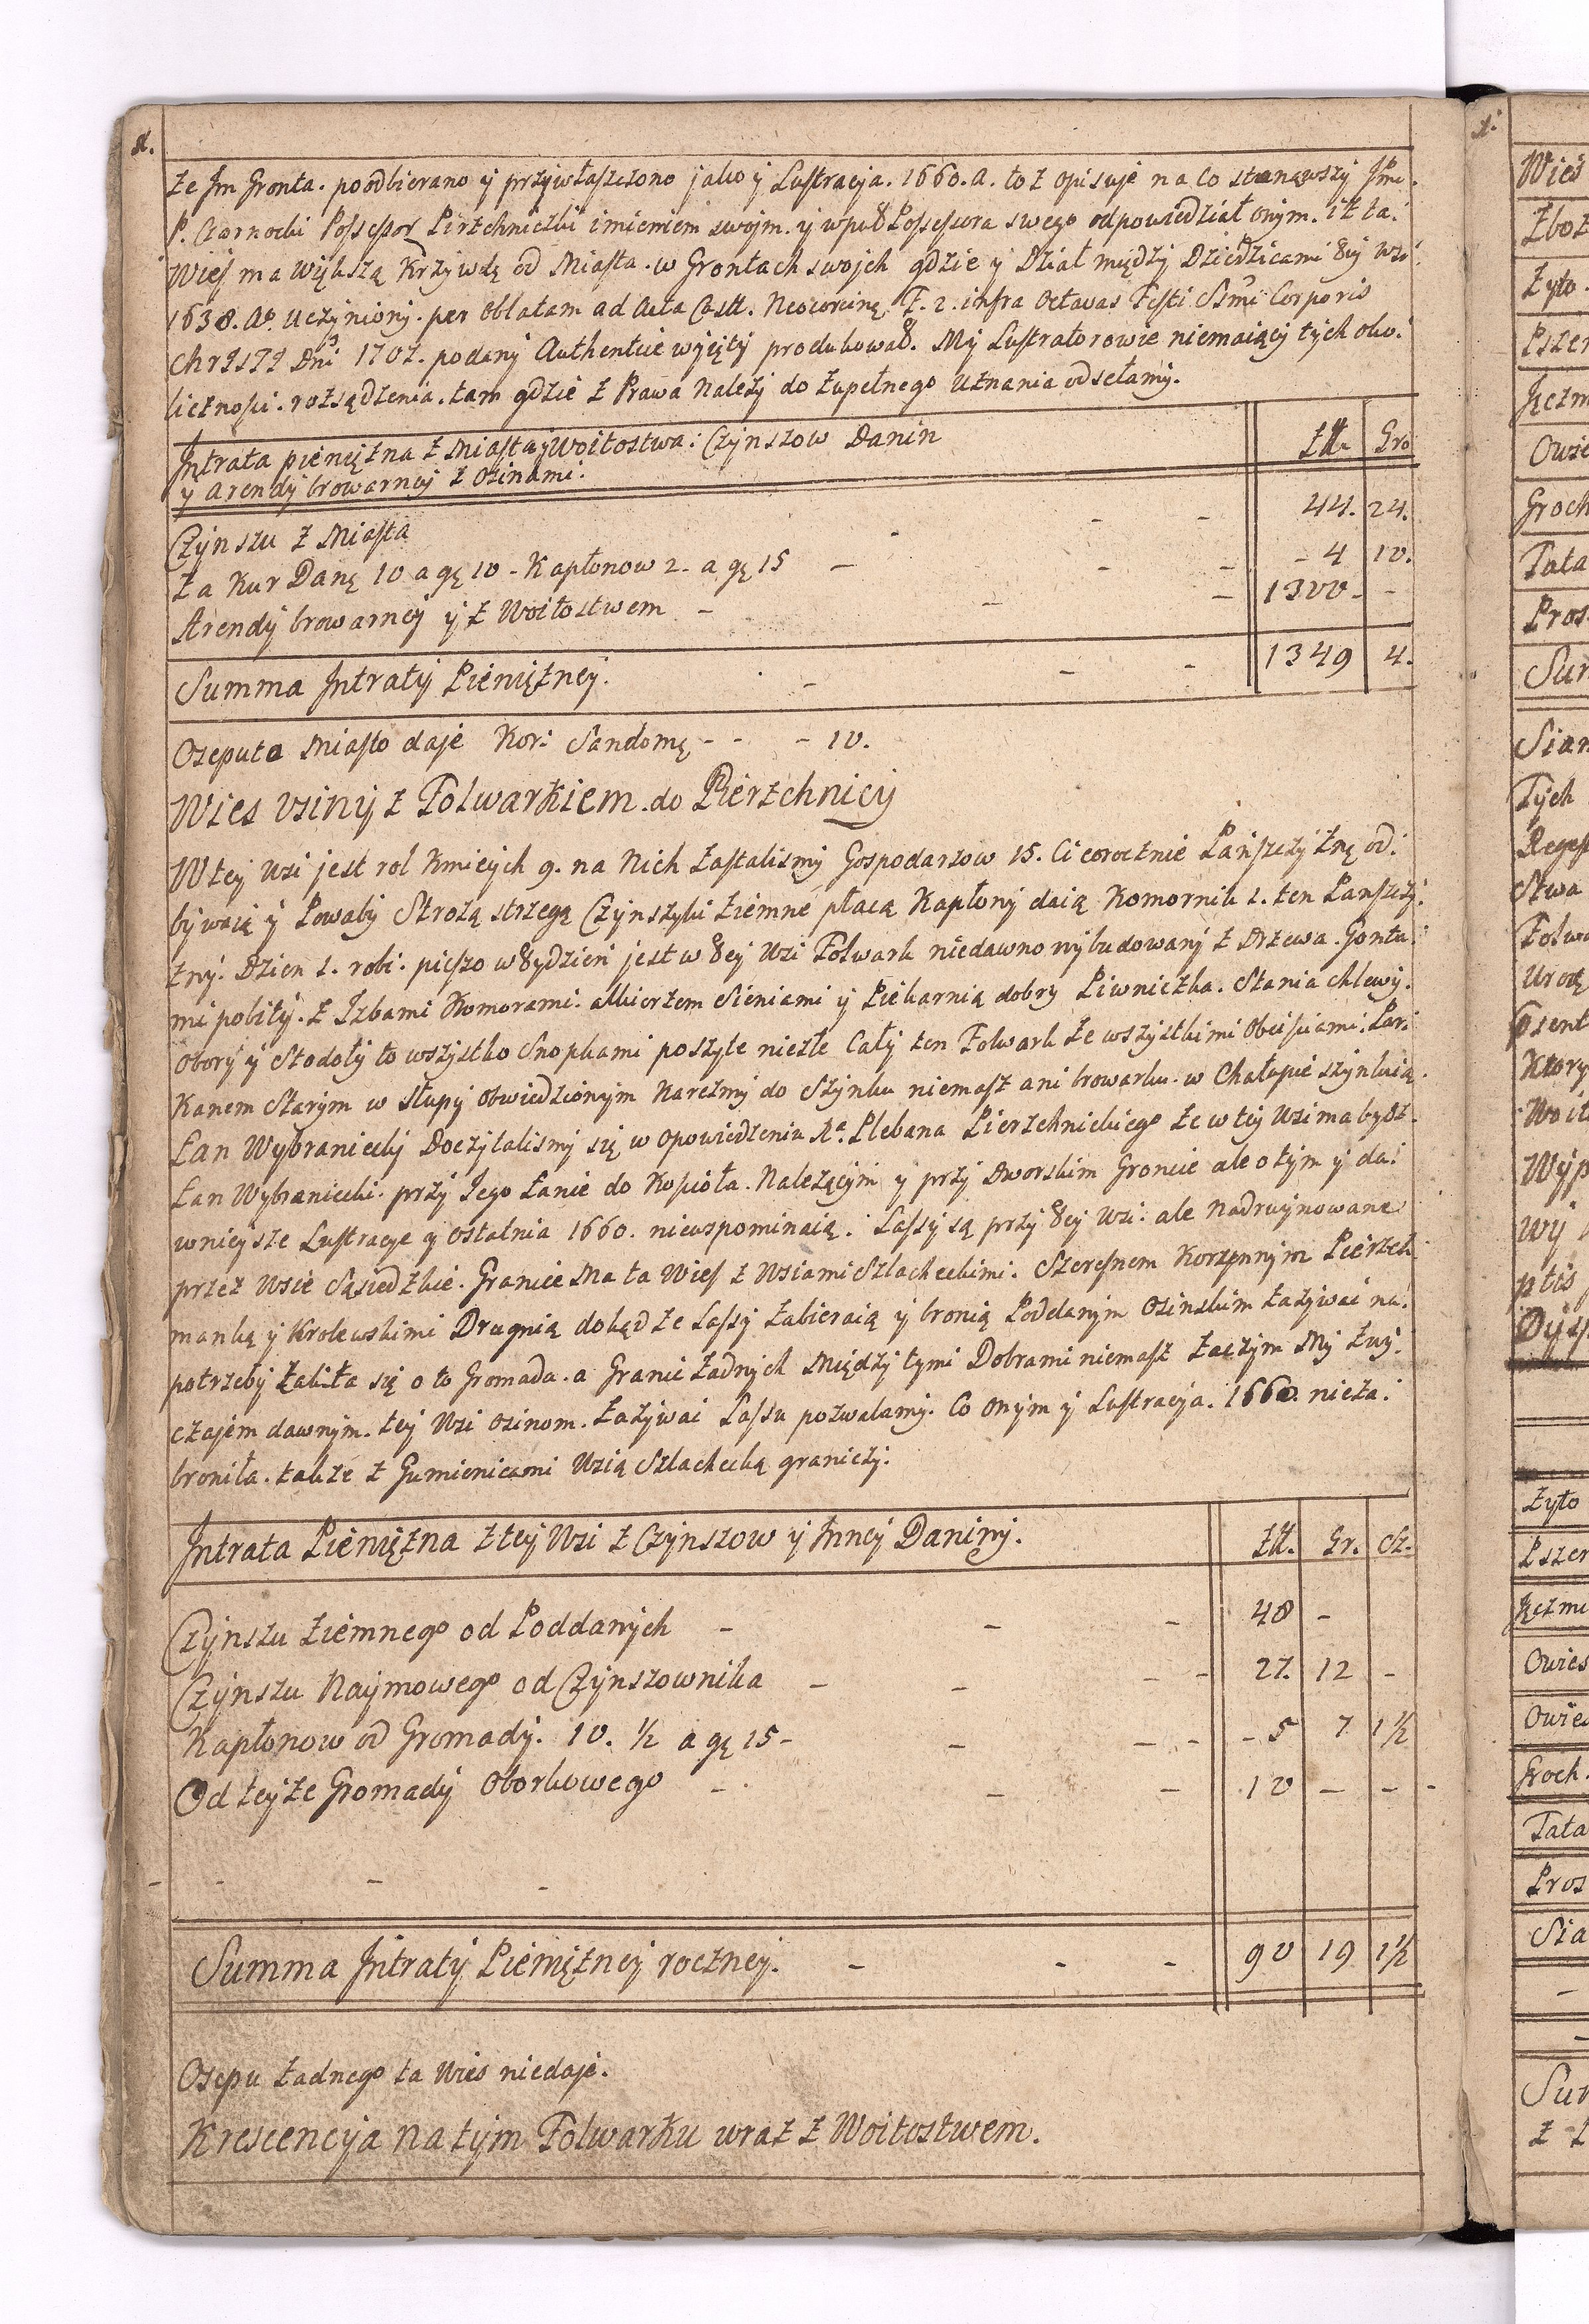 że Jm Gronta. poodbierano y przywłaszczono jako y Lustracya. 1660. A. toż opisuje na co stanąwszy Jmć.
P. Czarnocki Possessor Pirzchniczki imieniem swojm. y Possessora swego odpowiedział onym. iż ta.
Wieś ma większą Krzywdę od Miasta. w Grontach swojch gdzie y Dział między Dziedzicami wsi
1638. Ao. uczyniony. per oblatam ad Acta Castt. Neocorcinę. F. 2. infra Octavas Festi Ssmi Corporis
Chrysty Dni 1707. podany Authentice wyięty produkował. My Lustratorowie niemaiący tych oko.
licznosci. rozsądzenia. tam gdzie z Prawa Należy do zupełnego uznania odsełamy.
Jntrata pieniężna z Miasta y Woitostwa: Czynszow Danin
y Arendy browarney z Osinami. Złł. Gro
Czynszu z Miasta - - - 44. 24.
Za Kur Danę 10 a gę 10 - Kapłonow 2. a gę 15 - - - - 4 10.
Arendy browarney y z Woitostwem - - - 1300 - -
Summa Jntraty Pieniężney. - - - 1349 4.
Osepu ta Miasto daje Kor: Sandomę - - - 10.
Wies Osiny z Folwarkiem. do Pierzchnicy
W tey Wsi jest rol Kmiecych 9. na Nich zastalismy Gospodarzow 15. Ci corocznie Pańszczyznę od:
bywaią y Powaby Strożą strzegą Czynszyki ziemne płacą Kapłony daią Komornik 1. ten Panszczy:
zny. Dzien 1. robi. pieszo w tydzień jest w tey Wsi Folwark niedawno wybudowany z Drzewa. Gonta:
mi pobity. z Jzbami Komorami. alkierzem Sieniami y Piekarnią dobry Piwniczka. Stania chlewy.
Obory y Stodoły to wszystko Snopkami poszyte niezłe Cały ten Folwark ze wszystkimi obeisciami. Par:
Kanem Starym w słupy obwiedzionym Karczmy do Szynku niemasz ani browarku. w Chałupie szynkuią.
Łan Wybraniecky Doczytalismy się w opowiedzeniu Xa. Plebana Pierzchnickiego że w tey Wsi ma bydz.
Łan Wybraniecki. przy Jego Łanie do Kościoła. Należącym y przy Dworskim Groncie ale o tym y da:
wnieysze Lustracye y ostatnia 1660. niewspominaią. Lassy są przy tey Wsi: ale Nadruynowane
przez Wsie Sąsiedzkie. Granice Ma ta Wieś z Wsiami Szlacheckimi. Korzennym Pierzch
manką y Krolewskimi Drugnią dokąd że Lassy zabieraią y bronią Poddanym Osinskim zażywać na:
potrzeby żaliła się o to Gromada. a Granic żadnych Między tymi Dobrami niemasz zaczym My zwy:
czajem dawnym. tey Wsi Osinom. zażywać Lassu pozwalamy. Co onym y Lustracya. 1660. nieza:
broniła. także z Gumienicami Wsią Szlachecką graniczy.
Jntrata Pieniężna z tey Wsi z Czynszow y Jnney Daniny. Złł. Gr. Sz.
Czynszu ziemnego od Poddanych - - - 48 -
Czynszu Naymowego od Czynszownika - - - - 27. 12 -
Kapłonow od Gromady. 10. ½ a gę 15 - - - - - 5 7 1½
Od teyże Gromady Oborkowego - - - 10 - - -
- - - -
Summa Jntraty Pieniężney roczney. - - - 90 19 1½
Osepu żadnego ta Wies niedaje.
Krescencyja na tym Folwarku wraz z Woitostwem.